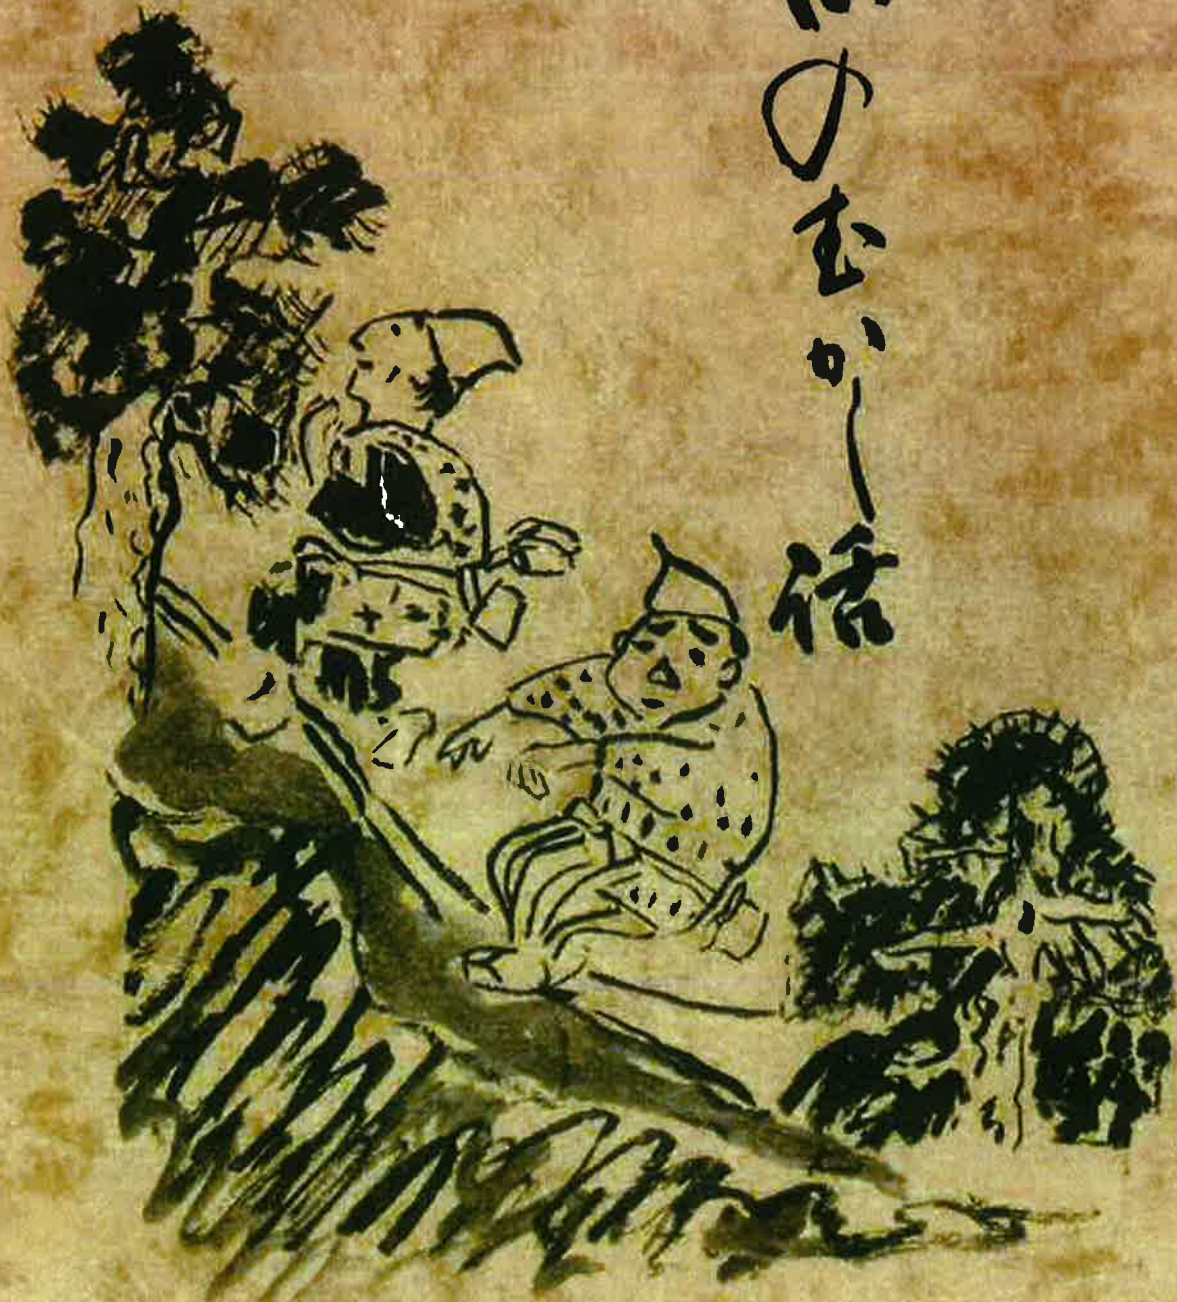 のむかし話